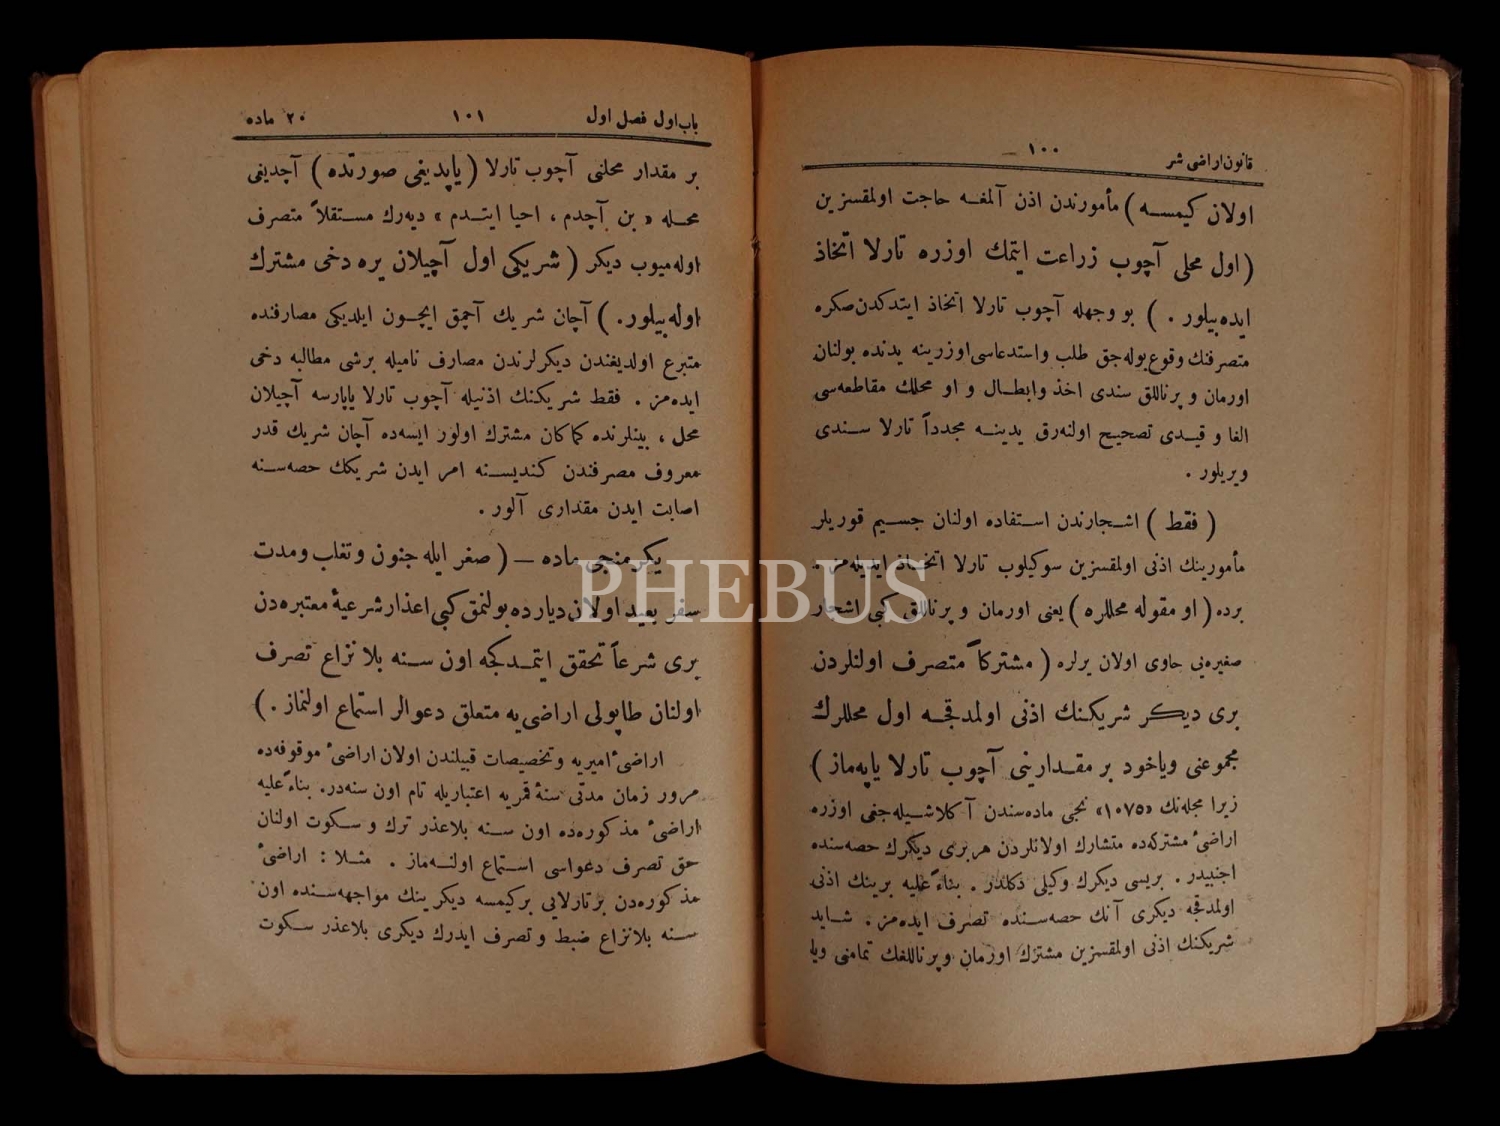 قانون اراضی شر
١٠٠
اولان كیمسه ) مأموردن اذن آلمغه حاجت اولمقسزین
( اول محلی آچوب زراعت ایتمك اوزره تارلا اتخاذ
ایده بیلور . ) بو وجهله آچوب تارلا اتخاذ ایتدكدن صكره
متصرفنك وقوع بوله جق طلب واستدعاسی اوزرینه یدنده بولنان
اورمان و پرناللق سندی اخذ وابطال و او محلك مقاطعه سی
الغا و قیدی تصحیح اولنه رق یدینه مجدداً تارلا سندی
ویریلور .
( فقط ) اشجارندن استفاده اولنان جسیم قوریلر
مأمورینك اذنی اولمقسزین سوكیلوب تارلا اتخاذ ایدیله مز .
برده ( او مقوله محللره ) یعنی اورمان و پرناللق كبی اشجار
صغیره یی حاوی اولان یرلره ( مشتركاً متصرف اولنلردن
بری دیكر شریكنك اذنی اولمدقجه اول محللرك
مجموعنی ویاخود بر مقدارینی آچوب تارلا یاپه ماز )
زیرا مجله نك «١٠٧٥» نجی ماده سندن آكلاشیله جغی اوزره
اراضیٔ مشتركه ده متشارك اولانلردن هر بری دیكرك حصه سنده
اجنبیدر . بریسی دیكرك وكیلی دكلدر . بناءً علیه برینك اذنی
اولمدقجه دیكری آنك حصه سنده تصرف ایده مز . شاید
شریكنك اذنی اولمقسزین مشترك اورمان و پرناللغك تمامنی ویا
باب اول فصل اول
١٠١
٢٠ ماده
بر مقدار محلنی آچوب تارلا ( یاپدیغی صورتده ) آچدیغی
محله « بن آچدم ، احیا ایتدم » دیه رك مستقلاً متصرف
اوله میوب دیكر ( شریكی اول آچیلان یره دخی مشترك
اوله بیلور . ) آچان شریك آچمق ایچون ایلدیكی مصارفنده
متبرع اولدیغندن دیكرلرندن مصارف نامیله برشی مطالبه دخی
ایده مز . فقط شریكنك اذنیله آچوب تارلا یاپارسه آچیلان
محل ، بینلرنده كماكان مشترك اولور ایسه ده آچان شریك قدر
معروف مصرفندن كندیسنه امر ایدن شریكك حصه سنه
اصابت ایدن مقداری آلور .
یكرمنجی ماده — ( صغر ایله جنون و تغلب و مدت
سفر بعید اولان دیارده بولنمق كبی اعذار شرعیهٔ معتبره دن
بری شرعاً تحقق ایتمدكجه اون سنه بلا نزاع تصرف
اولنان طاپولی اراضی یه متعلق دعوالر استماع اولنماز . )
اراضیٔ امیریه و تخصیصات قبیلندن اولان اراضیٔ موقوفه ده
مرور زمان مدتی سنهٔ قمریه اعتباریله تام اون سنه در . بناءً علیه
اراضیٔ مذكوره ده اون سنه بلاعذر ترك و سكوت اولنان
حق تصرف دعواسی استماع اولنه ماز . مثلا : اراضیٔ
مذكوره دن بر تارلایی بر كیمسه دیكرینك مواجهه سنده اون
سنه بلانزاع ضبط و تصرف ایدرك دیكری بلاعذر سكوت
PHEBUS